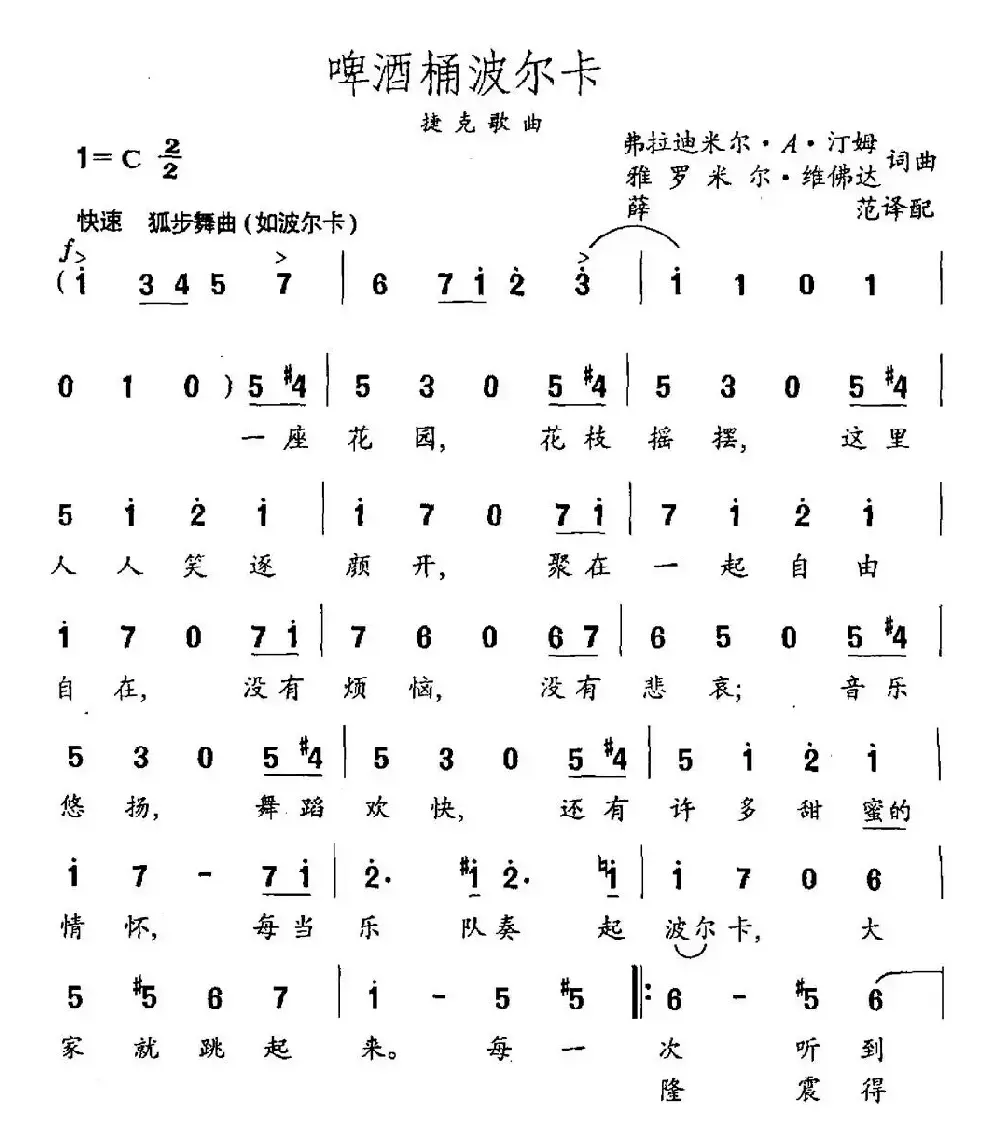 啤酒桶波尔卡
捷克歌曲
1=C 2/2
弗拉迪米尔·A·汀姆
雅罗米尔·维佛达 词曲
薛范译配
快速 狐步舞曲(如波尔卡)
f
(i 3 4 5 7 | 6 7 i 2̇ 3̇ | i 1 0 1 |
0 1 0 ) 5 #4 | 5 3 0 5 #4 | 5 3 0 5 #4 |
一座花园, 花枝摇摆, 这里
5 i 2̇ i | i 7 0 7 i | 7 i 2̇ i |
人人笑逐颜开, 聚在一起自由
i 7 0 7 i | 7 6 0 6 7 | 6 5 0 5 #4 |
自在, 没有烦恼, 没有悲哀; 音乐
5 3 0 5 #4 | 5 3 0 5 #4 | 5 i 2̇ i |
悠扬, 舞蹈欢快, 还有许多甜蜜的
i 7 - 7 i | 2̇· #i 2̇· ♮i | i 7 0 6 |
情怀, 每当乐队奏起波尔卡, 大
5 #5 6 7 | i - 5 #5 ‖: 6 - #5 6 |
家就跳起来。每一次听到
隆震得